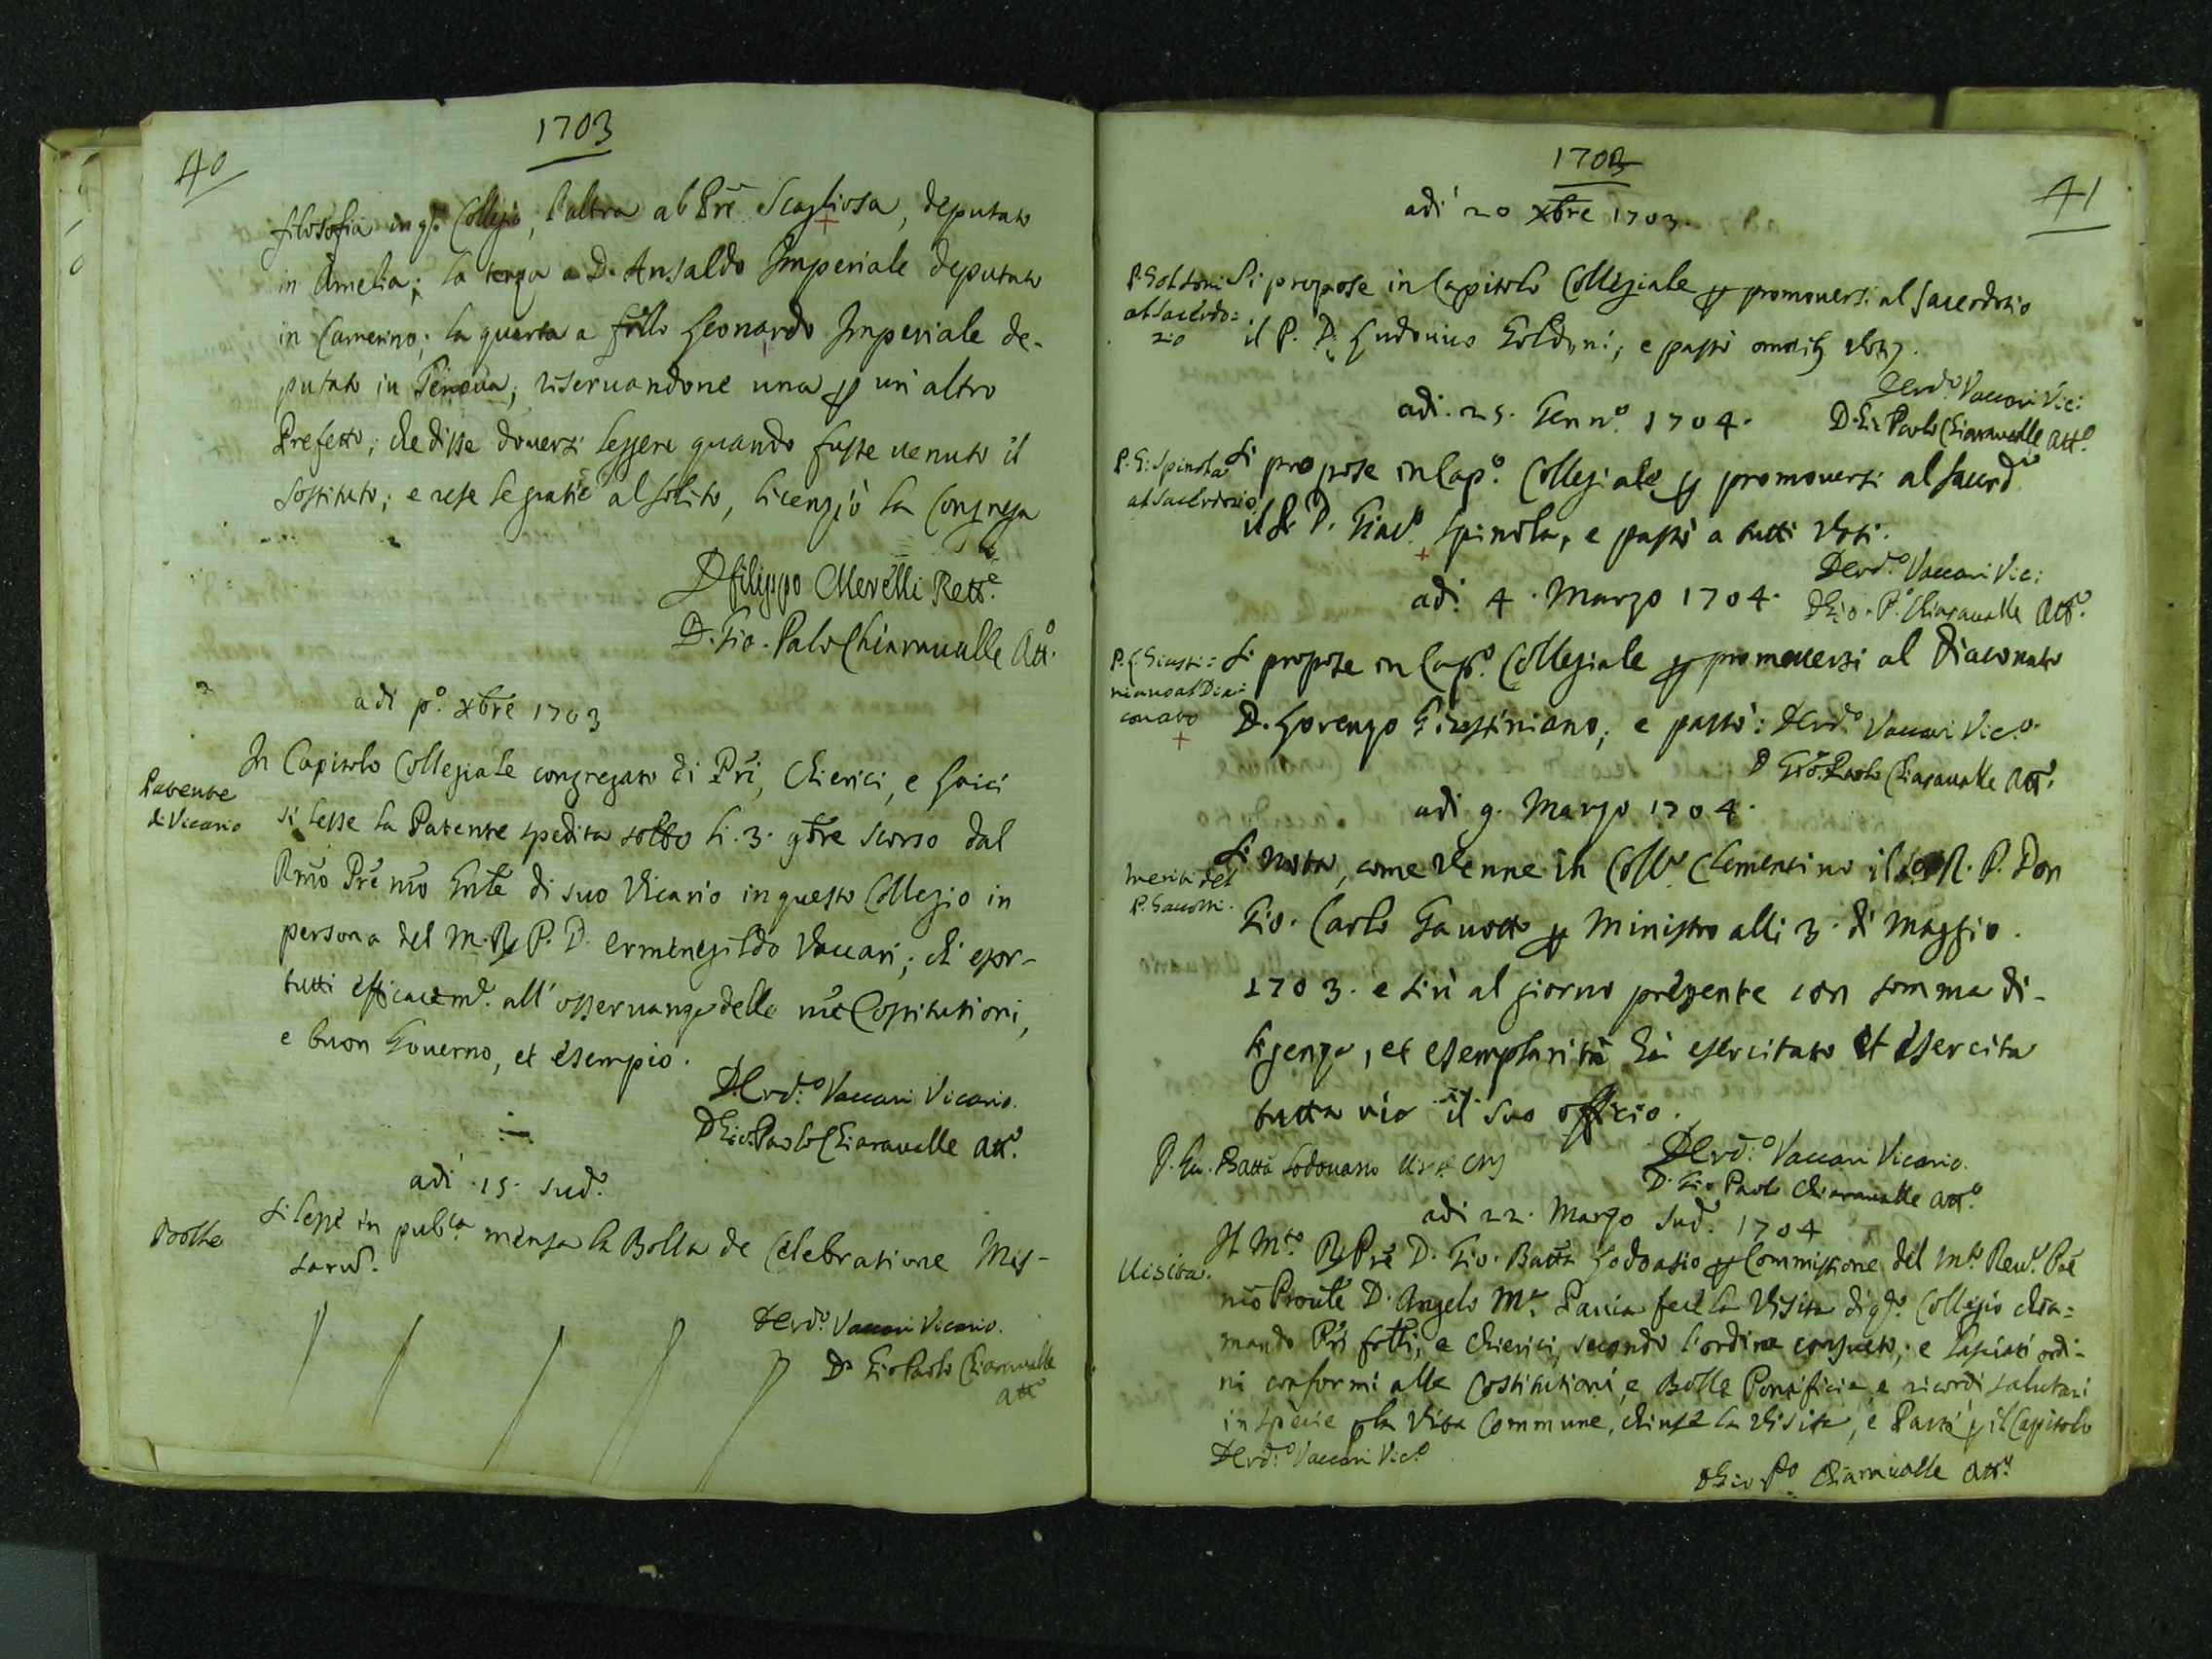 40
1703
filosofia in qsto. Collegio, l'altra al Prē Scagliosa, deputato
in Amelia; la terza a D. Ansaldo Imperiale deputato
in Camerino; la quarta a frēllo Leonardo Imperiale de-
putato in Genova; riservandone una p un altro
Prefetto; che disse doversi leggere quando fusse venuto il
sostituto; e rese le gratie al solito, licenziò la Congrega
D filippo Merelli Rett.e
D. Gio. Palo Chiaravalle Att.o
adi p.o xbre 1703
In Capitolo Collegiale congregato di Pri, Chierici, e Laici
Patente
di Vicario
si lesse la Patente spedita sotto li. 3. 9bre scorso dal
Rmo Prē nrō Gnle di suo Vicario in questo Collegio in
persona del M. R. P. D. Ermenegildo Vaccari; ch' esor-
tutti efficacem.e all' osservanza delle nrē Costitutioni,
e buon Governo, et esempio.
D. Erd.o Vaccari Vicario.
D Gio. Paolo Chiaravalle Att.o
adi .15. sud.o
Bolle
Si lesse in publ.ca mensa la Bolla de Celebratione Mis-
saru.
D Erd.o Vaccari Vicario.
D. Gio Paolo Chiaravalle
Att.o
1703
41
adi 20 xbre 1703.
P. Goldoni
al Sacerdo=
zio
Si propose in Capitolo Collegiale p promoversi al sacerdozio
il P. D. Ludovico Goldoni; e passò omnibus votis.
D Erd.o Vaccari Vic:
D Gio Paolo Chiaravalle Att.o
adi. 25. Genn.o 1704.
P. G. Spinola
al Sacerdozio
Si propose in Cap.o Collegiale p promoversi al sacerd.o
il P. Giac.o Spinola, e passò a tutti voti.
D Erd.o Vaccari Vic:
D Gio. P.o Chiaravalle Att.o
adi. 4. Marzo 1704.
P. L. Giusti=
niano al Dia=
conato
Si propose in Cap.o Collegiale p promoversi al Diaconato
D. Lorenzo Giustiniano; e passò: D Erd.o Vaccari Vic.o
D Gio. Paolo Chiaravalle Att.o
adi 9. Marzo 1704.
Meriti del
P. Gavotti.
Si nota, come venne in Coll.o Clementino il R. P. Don
Gio. Carlo Gavotto p Ministro alli 3. di Maggio.
1703. e sin al giorno presente con somma di-
ligenza, et esemplarità hà esercitato et esercita
tutta via il suo officio.
D. Erd.o Vaccari Vicario.
D. Gio. Batta Lodovasio
D. Gio Paolo Chiaravalle Att.o
adi 22. Marzo sud.o 1704
Visita.
Il M.to R. Prē D. Gio. Batta Lodovasio p Commissione del M.to Rev. Prē
nrō Pronle D. Angelo M.a Pavia fece la Visita di qsto. Collegio chia=
mando Pri frlli, e chierici, secondo l'ordine consueto; e lasciati ordi-
ni conformi alle Costitutioni, e Bolle Pontificie, e ricordi salutari
in specie p la Vita Commune, chiuse la visita, e Partì p il Capitolo
D Erd.o Vaccari Vic.o
D Gio. P.o Chiaravalle Att.o